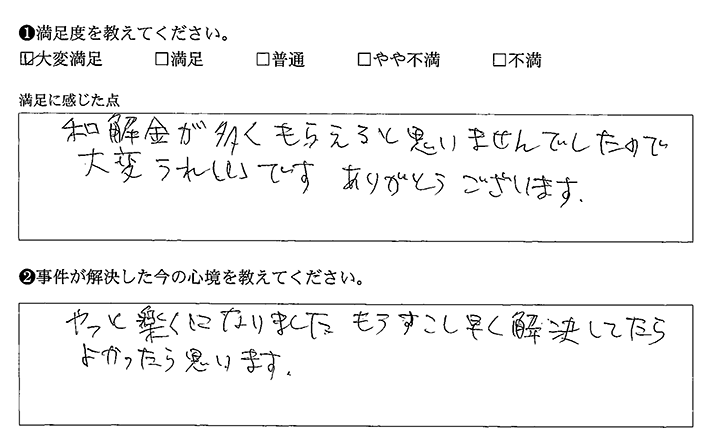 ❶満足度を教えてください。
☑大変満足 □満足 □普通 □やや不満 □不満
満足に感じた点
和解金が多くもらえると思いませんでしたので
大変うれしいです ありがとうございます.
❷事件が解決した今の心境を教えてください。
やっと楽くになりました もうすこし早く解決してたら
よかったら思います.